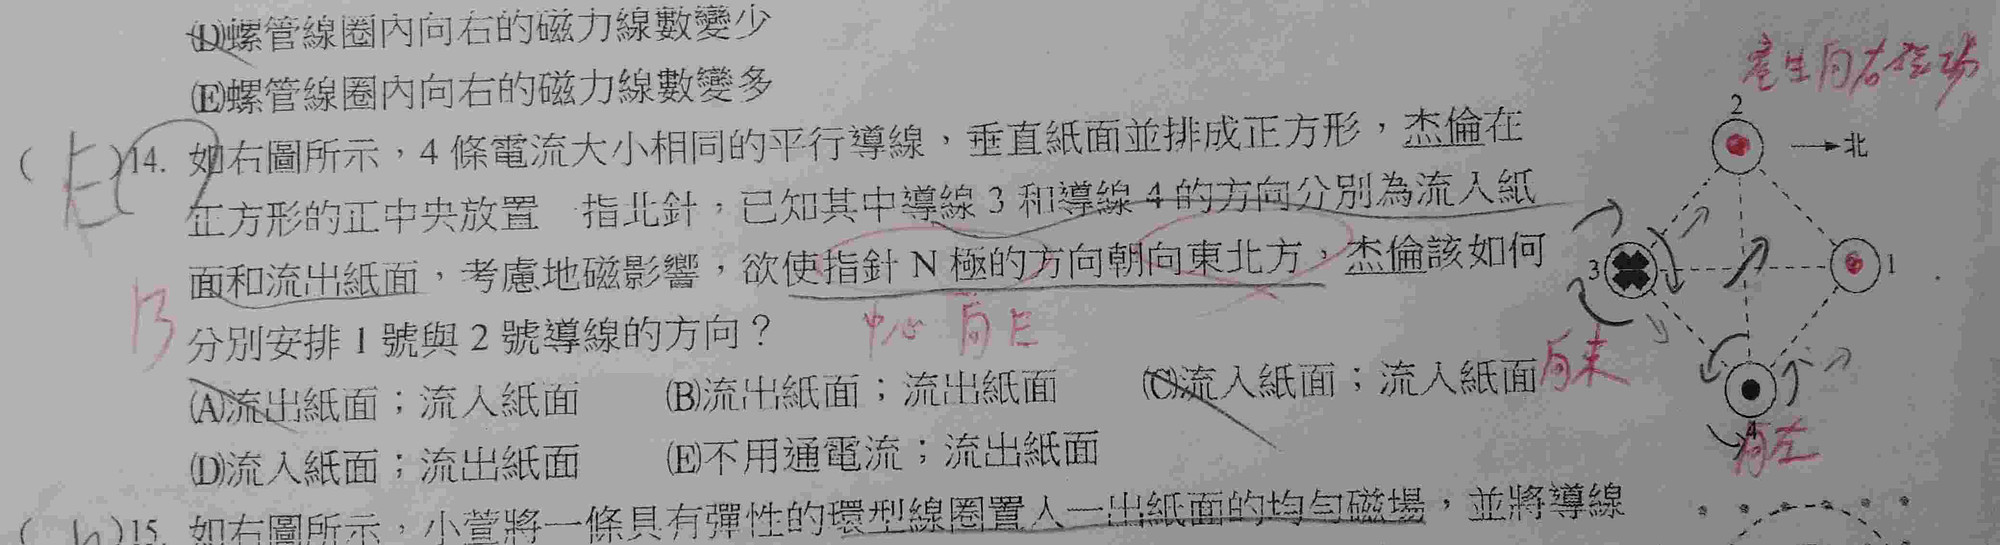 (D)螺管線圈內向右的磁力線數變少
(E)螺管線圈內向右的磁力線數變多
產生向右磁場
(E)14. 如右圖所示，4 條電流大小相同的平行導線，垂直紙面並排成正方形，杰倫在
正方形的正中央放置 指北針，已知其中導線 3 和導線 4 的方向分別為流入紙
面和流出紙面，考慮地磁影響，欲使指針 N 極的方向朝向東北方，杰倫該如何
分別安排 1 號與 2 號導線的方向？
B
中心 向上
(A)流出紙面；流入紙面 (B)流出紙面；流出紙面 (C)流入紙面；流入紙面
(D)流入紙面；流出紙面 (E)不用通電流；流出紙面
2
北
3
1
4
向左
( )15. 如右圖所示，小萱將一條具有彈性的環型線圈置入一出紙面的均勻磁場，並將導線